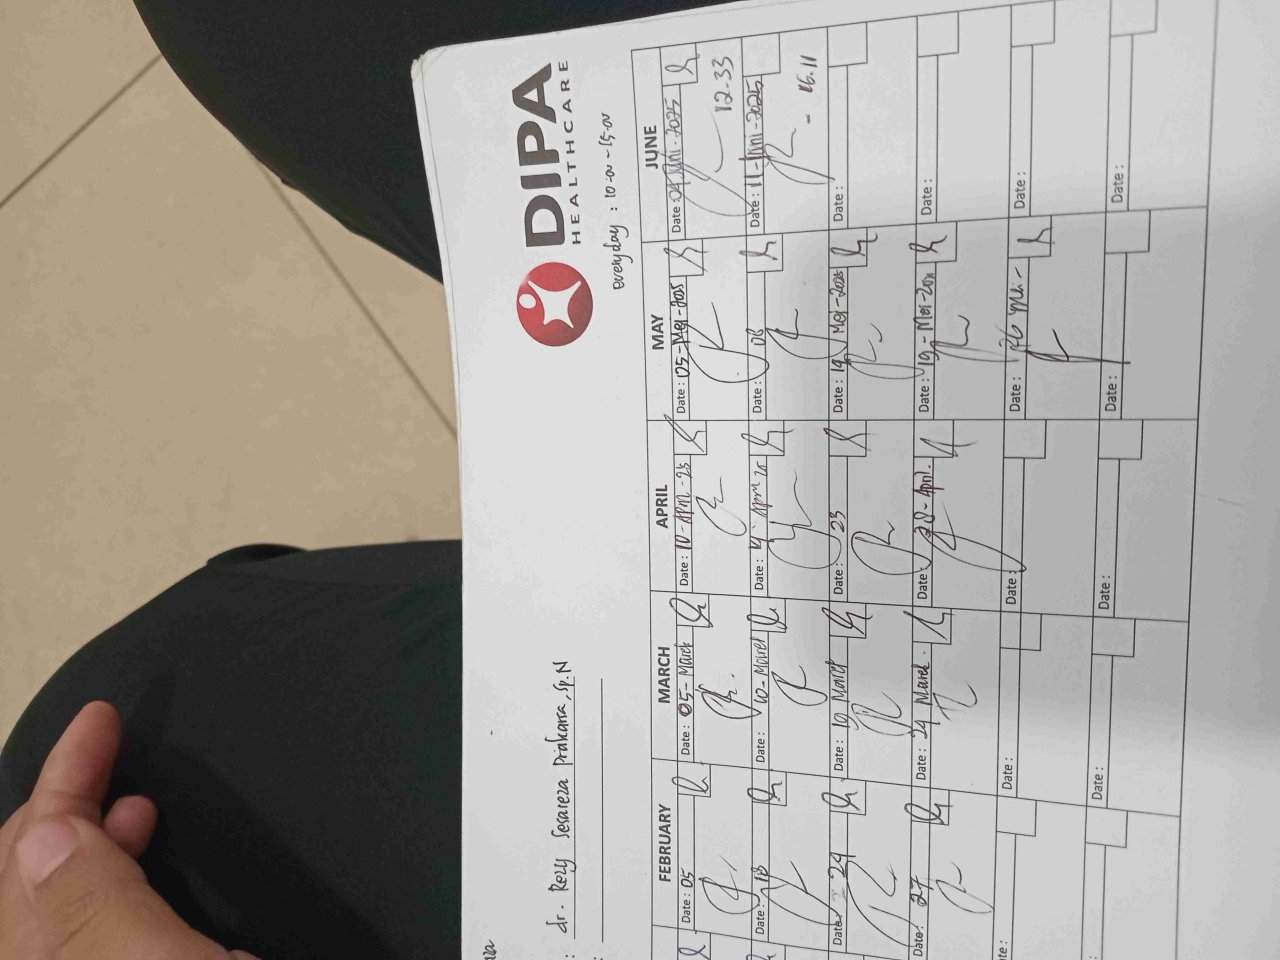 DIPA
HEALTHCARE
everyday : 10-00 - 15-00
: dr. Rezy Sesareza Prakarsa, Sp.N
:
FEBRUARY MARCH APRIL MAY JUNE
Date : 05 Date : 05 - Maret Date : 10 - April - 25 Date : 05 - Mei - 2025 Date : 04 Juni - 2025
12-33
Date : 18 Date : 10 - Maret Date : 14 April 25 Date : 08 Date : 11 - Juni - 2025
- 16.11
Date : 24 Date : 19 Maret Date : 23 Date : 14 Mei - 2025 Date :
Date : 27 Date : 24 Maret Date : 28 - April. Date : 19 - Mei - 202 Date :
Date : Date : Date : 26 Date :
Date : Date : Date : Date :